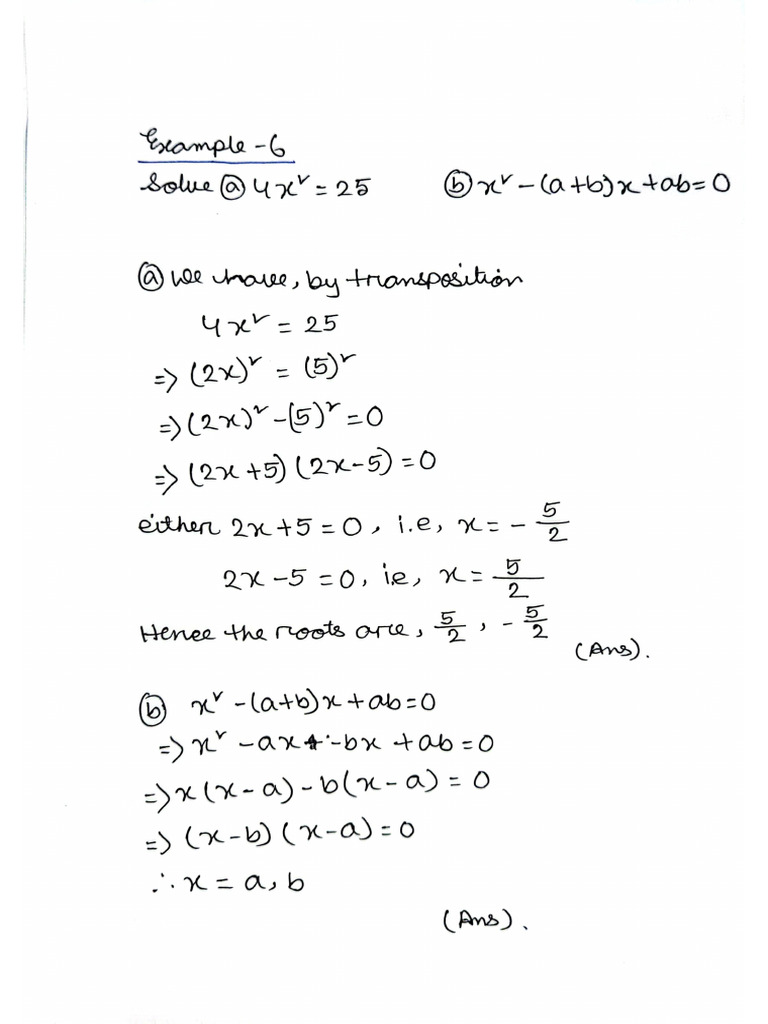 Example-6
Solve ⓐ 4x² = 25 ⓑ x² - (a+b)x + ab = 0
ⓐ We have, by transposition
4x² = 25
=> (2x)² = (5)²
=> (2x)² - (5)² = 0
=> (2x+5) (2x-5) = 0
either 2x+5 = 0, i.e, x = - 5/2
2x-5 = 0, ie, x = 5/2
Hence the roots are, 5/2, - 5/2
(Ans).
ⓑ x² - (a+b)x + ab = 0
=> x² - ax - bx + ab = 0
=> x(x-a) - b(x-a) = 0
=> (x-b) (x-a) = 0
∴ x = a, b
(Ans).